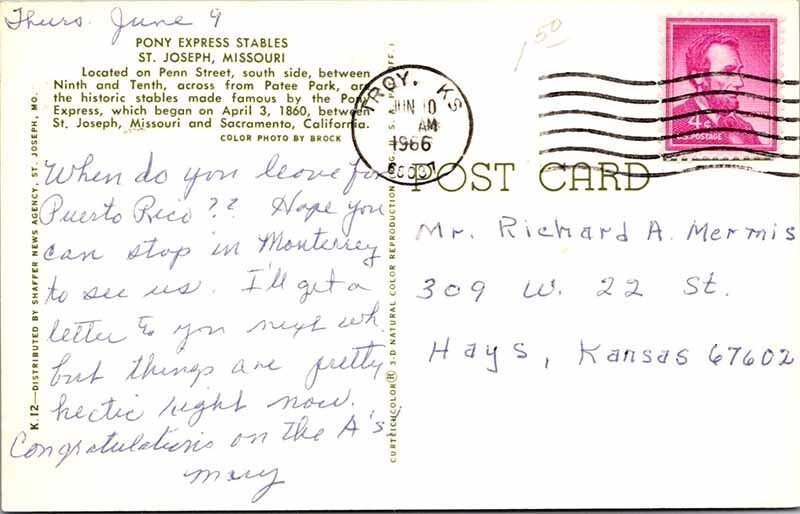 Thurs. June 9
PONY EXPRESS STABLES
ST. JOSEPH, MISSOURI
Located on Penn Street, south side, between
Ninth and Tenth, across from Patee Park, are
the historic stables made famous by the Pony
Express, which began on April 3, 1860, between
St. Joseph, Missouri and Sacramento, California.
COLOR PHOTO BY BROCK
When do you leave for
Puerto Rico?? Hope you
can stop in Monterrey
to see us. I'll get a
letter to you next wk.
but things are pretty
hectic right now.
Congratulations on the A's.
Mary
K.12—DISTRIBUTED BY SHAFFER NEWS AGENCY, ST. JOSEPH, MO.
CURTEICHCOLOR® 3-D NATURAL COLOR REPRODUCTION
1 50
TROY, KS
JUN 10
AM
1966
4¢
U.S. POSTAGE
POST CARD
Mr. Richard A. Mermis
309 W. 22 St.
Hays, Kansas 67602